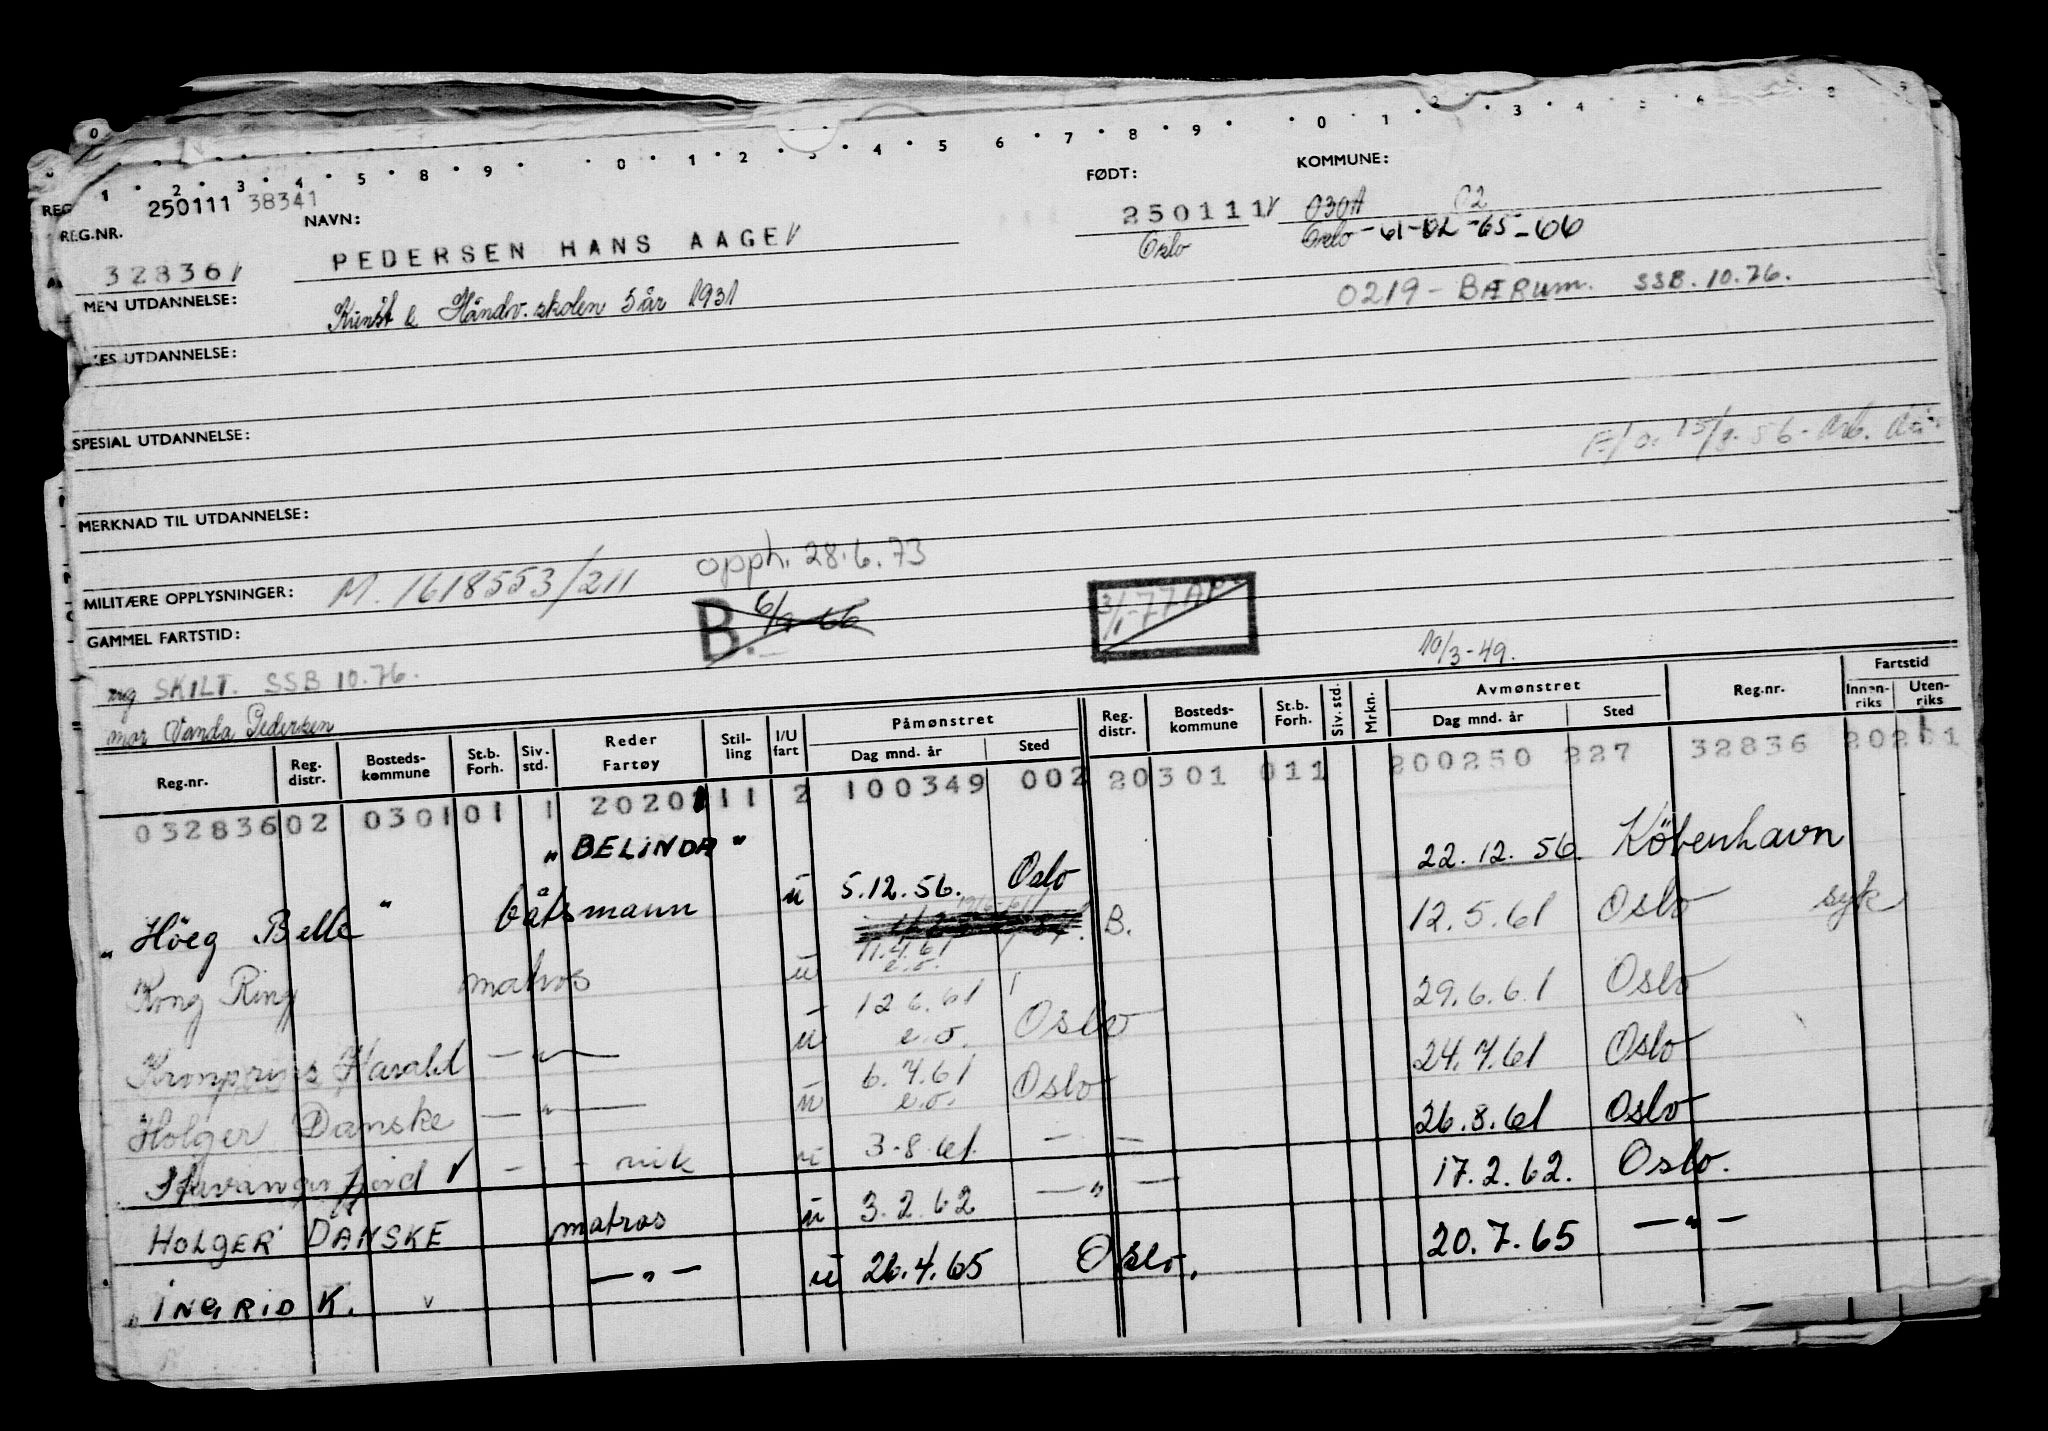 0
1 · 2 · 3 · 4 · 5 · 8 · 9 · · 0 · 1 · 2 · 3 · 4 · 5 · 6 · 7 · 8 · 9 · · 0 · 1 · 2 · 3 · 4 · 5 · 6 · 8 · 9
REG 250111 38341
REG.NR. NAVN: FØDT: KOMMUNE:
32836 PEDERSEN HANS AAGE 250111 030A 02
Oslo Oslo -61-02-65-66
MEN UTDANNELSE: Kunst & Håndv. skolen 5 år 1931 0219 - BÆRUM. SSB. 10.76.
ES UTDANNELSE:
SPESIAL UTDANNELSE: 56 - Arb.
MERKNAD TIL UTDANNELSE:
opph. 28.6.73
MILITÆRE OPPLYSNINGER: M. 1618553/211
GAMMEL FARTSTID: B. 3/1-77
SKILT. SSB 10.76. 10/3-49.
mor Vanda Pedersen
Reg.nr. Reg. distr. Bosteds-kommune St.b. Forh. Siv. std. Reder Fartøy Stil-ling I/U fart Påmønstret Dag mnd. år Sted Reg. distr. Bosteds-kommune St.b. Forh. Siv. std. Mrkn. Avmønstret Dag mnd. år Sted Reg.nr. Fartstid Innen-riks Uten-riks
032836 02 0301 01 1 2020 11 2 100349 002 20301 011 200250 227 32836 20201
"BELINDA"
"Höeg Belle" båtsmann u 5.12.56. Oslo 22.12.56. Köbenhavn
Kong Ring matros u 11.4.61 e.o. B. 12.5.61 Oslo syk
Kronprins Harald — " — u 12.6.61 e.o. Oslo 29.6.61 Oslo
Holger Danske — " — u 6.7.61 e.o. Oslo 24.7.61 Oslo
Stavangerfjord - - vik u 3.8.61. — — 26.8.61 Oslo
HOLGER DANSKE matros u 3.2.62 — " — 17.2.62. Oslo.
"INGRID K. v — " — u 26.4.65 Oslo. 20.7.65 — " —